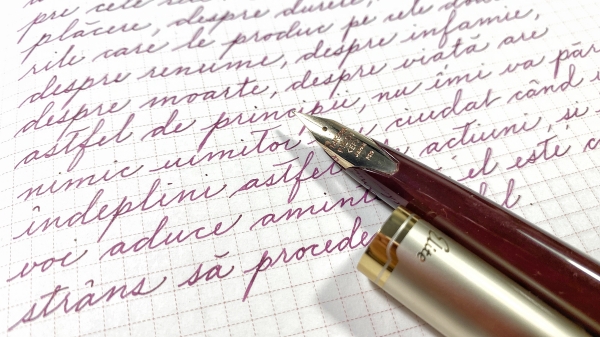 pre cele
plăcere, despre durere,
rile care le produc pe cele două
despre renume, despre infamie,
despre moarte, despre viață are
astfel de principii, nu îmi va păr
nimic uimitor, ciudat când
îndeplini astfel acțiuni, și
voi aduce amint el este
strâns să procede
Elite